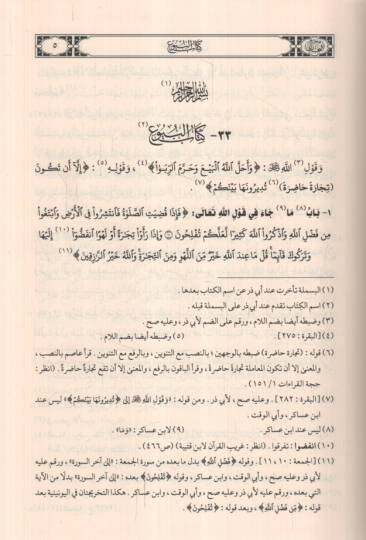 كتاب البيوع
٥
بسم الله الرحمن الرحيم (١)
٣٣- كتاب البيوع (٢)
وَقَوْلِ (٣) اللهِ ﷻ: ﴿وَأَحَلَّ ٱللَّهُ ٱلْبَيْعَ وَحَرَّمَ ٱلرِّبَوٰا۟﴾ (٤)، وَقَوْلِهِ (٥): ﴿إِلَّآ أَن تَكُونَ
تِجَٰرَةً حَاضِرَةً (٦) تُدِيرُونَهَا بَيْنَكُمْ﴾ (٧).
١- بَابُ (٨) مَا (٩) جَاءَ فِي قَوْلِ اللهِ تَعَالَى: ﴿فَإِذَا قُضِيَتِ ٱلصَّلَوٰةُ فَٱنتَشِرُوا۟ فِى ٱلْأَرْضِ وَٱبْتَغُوا۟
مِن فَضْلِ ٱللَّهِ وَٱذْكُرُوا۟ ٱللَّهَ كَثِيرًا لَّعَلَّكُمْ تُفْلِحُونَ ۝ وَإِذَا رَأَوْا۟ تِجَٰرَةً أَوْ لَهْوًا ٱنفَضُّوٓا۟ (١٠) إِلَيْهَا
وَتَرَكُوكَ قَآئِمًا قُلْ مَا عِندَ ٱللَّهِ خَيْرٌ مِّنَ ٱللَّهْوِ وَمِنَ ٱلتِّجَٰرَةِ وَٱللَّهُ خَيْرُ ٱلرَّٰزِقِينَ﴾ (١١)
(١) البسملة تأخرت عند أبي ذر عن اسم الكتاب بعدها.
(٢) اسم الكتاب تقدم عند أبي ذر على البسملة قبله.
(٣) وضبطه أيضا بضم اللام، ورقم على الضم لأبي ذر، وعليه صح.
(٤) [البقرة: ٢٧٥]. (٥) وضبطه أيضا بضم اللام.
(٦) قوله: (تجارة حاضرة) ضبطه بالوجهين؛ بالنصب مع التنوين، وبالرفع مع التنوين. قرأ عاصم بالنصب،
والمعنى إلا أن تكون المعاملة تجارة حاضرة، وقرأ الباقون بالرفع، والمعنى إلا أن تقع تجارة حاضرة. (انظر:
حجة القراءات ١/١٥١).
(٧) [البقرة: ٢٨٢]. وعليه صح، لأبي ذر. ومن قوله: «وَقَوْلِ اللهِ ﷻ إلى ﴿تُدِيرُونَهَا بَيْنَكُمْ﴾» ليس عند
ابن عساكر، وأبي الوقت.
(٨) ليس عند ابن عساكر. (٩) لابن عساكر: «وَمَا».
(١٠) انفضوا: تفرقوا. (انظر: غريب القرآن لابن قتيبة) (ص٤٦٦).
(١١) [الجمعة: ١٠، ١١]. وقوله: ﴿فَضْلِ ٱللَّهِ﴾ بدل ما بعده من سورة الجمعة: «إلى آخر السورة»، ورقم عليه
لأبي ذر وعليه صح، وأبي الوقت، وابن عساكر، وقوله ﴿تُفْلِحُونَ﴾ بعده: «إلى آخر السورة» بدلًا من الآية
التي بعده، ورقم عليه لأبي ذر وعليه صح، وأبي الوقت، وابن عساكر. هكذا التخريجتان في اليونينية بعد
قوله: ﴿مِن فَضْلِ ٱللَّهِ﴾، وبعد قوله: ﴿تُفْلِحُونَ﴾.